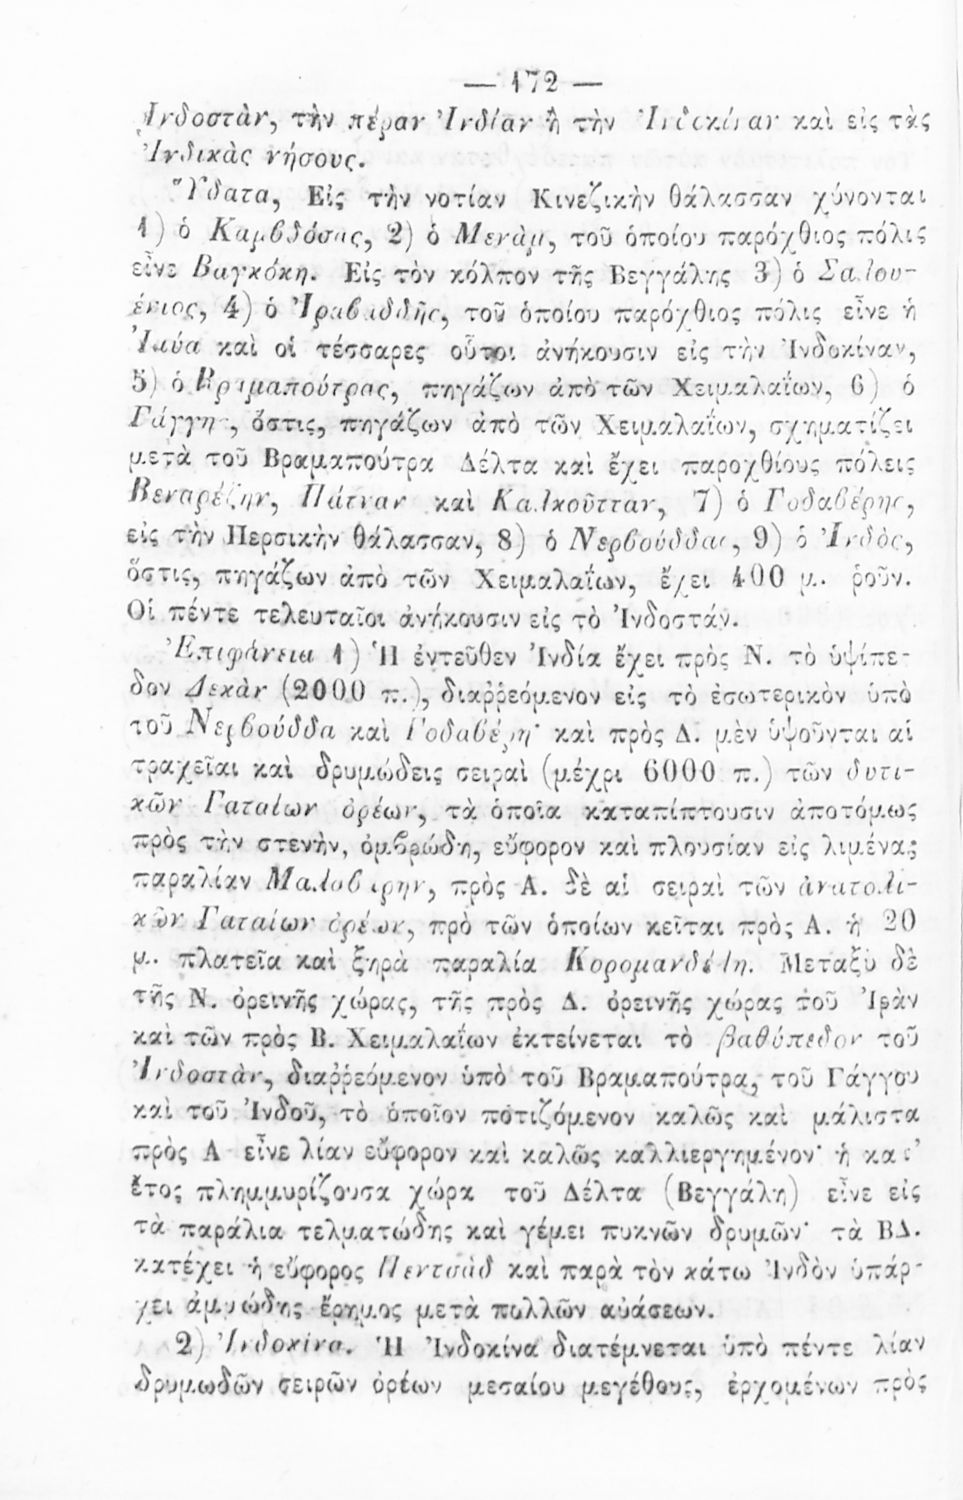 — 172 —
Ἰνδοστὰν, τὴν πέραν Ἰνδίαν ἢ τὴν Ἰνδοκίναν καὶ εἰς τὰς
Ἰνδικὰς νήσους.
Ὕδατα, Εἰς τὴν νοτίαν Κινεζικὴν θάλασσαν χύνονται
1) ὁ Καμβδόσας, 2) ὁ Μενὰμ, τοῦ ὁποίου παρόχθιος πόλις
εἶνε Βαγκόκη. Εἰς τὸν κόλπον τῆς Βεγγάλης 3) ὁ Σαλου-
ένιος, 4) ὁ Ἰραβαδδῆς, τοῦ ὁποίου παρόχθιος πόλις εἶνε ἡ
Ἰαύα καὶ οἱ τέσσαρες οὗτοι ἀνήκουσιν εἰς τὴν Ἰνδοκίναν,
5) ὁ Βραμαπούτρας, πηγάζων ἀπὸ τῶν Χειμαλαΐων, 6) ὁ
Γάγγης, ὅστις, πηγάζων ἀπὸ τῶν Χειμαλαΐων, σχηματίζει
μετὰ τοῦ Βραμαπούτρα Δέλτα καὶ ἔχει παροχθίους πόλεις
Βεναρέζην, Πάτναν καὶ Καλκοῦτταν, 7) ὁ Γοδαβέρης,
εἰς τὴν Περσικὴν θάλασσαν, 8) ὁ Νερβούδδας, 9) ὁ Ἰνδὸς,
ὅστις, πηγάζων ἀπὸ τῶν Χειμαλαΐων, ἔχει 400 μ. ῥοῦν.
Οἱ πέντε τελευταῖοι ἀνήκουσιν εἰς τὸ Ἰνδοστάν.
Ἐπιφάνεια 1) Ἡ ἐντεῦθεν Ἰνδία ἔχει πρὸς Ν. τὸ ὑψίπε-
δον Δεκὰν (2000 π.), διαῤῥεόμενον εἰς τὸ ἐσωτερικὸν ὑπὸ
τοῦ Νερβούδδα καὶ Γοδαβέρη· καὶ πρὸς Δ. μὲν ὑψοῦνται αἱ
τραχεῖαι καὶ δρυμώδεις σειραὶ (μέχρι 6000 π.) τῶν δυτι-
κῶν Γαταίων ὀρέων, τὰ ὁποῖα καταπίπτουσιν ἀποτόμως
πρὸς τὴν στενὴν, ὀμβρώδη, εὔφορον καὶ πλουσίαν εἰς λιμένας
παραλίαν Μαλαβάρην, πρὸς Α. δὲ αἱ σειραὶ τῶν ἀνατολι-
κῶν Γαταίων ὀρέων, πρὸ τῶν ὁποίων κεῖται πρὸς Α. ἡ 20
μ. πλατεῖα καὶ ξηρὰ παραλία Κορομανδέλη. Μεταξὺ δὲ
τῆς Ν. ὀρεινῆς χώρας, τῆς πρὸς Δ. ὀρεινῆς χώρας τοῦ Ἰρὰν
καὶ τῶν πρὸς Β. Χειμαλαΐων ἐκτείνεται τὸ βαθύπεδον τοῦ
Ἰνδοστὰν, διαῤῥεόμενον ὑπὸ τοῦ Βραμαπούτρα, τοῦ Γάγγου
καὶ τοῦ Ἰνδοῦ, τὸ ὁποῖον ποτιζόμενον καλῶς καὶ μάλιστα
πρὸς Α εἶνε λίαν εὔφορον καὶ καλῶς καλλιεργημένον· ἡ κατ’
ἔτος πλημμυρίζουσα χώρα τοῦ Δέλτα (Βεγγάλη) εἶνε εἰς
τὰ παράλια τελματώδης καὶ γέμει πυκνῶν δρυμῶν· τὰ ΒΔ.
κατέχει ἡ εὔφορος Πεντσὰδ καὶ παρὰ τὸν κάτω Ἰνδὸν ὑπάρ-
χει ἀμμώδης ἔρημος μετὰ πολλῶν αὐάσεων.
2) Ἰνδοκίνα. Ἡ Ἰνδοκίνα διατέμνεται ὑπὸ πέντε λίαν
δρυμωδῶν σειρῶν ὀρέων μεσαίου μεγέθους, ἐρχομένων πρὸς